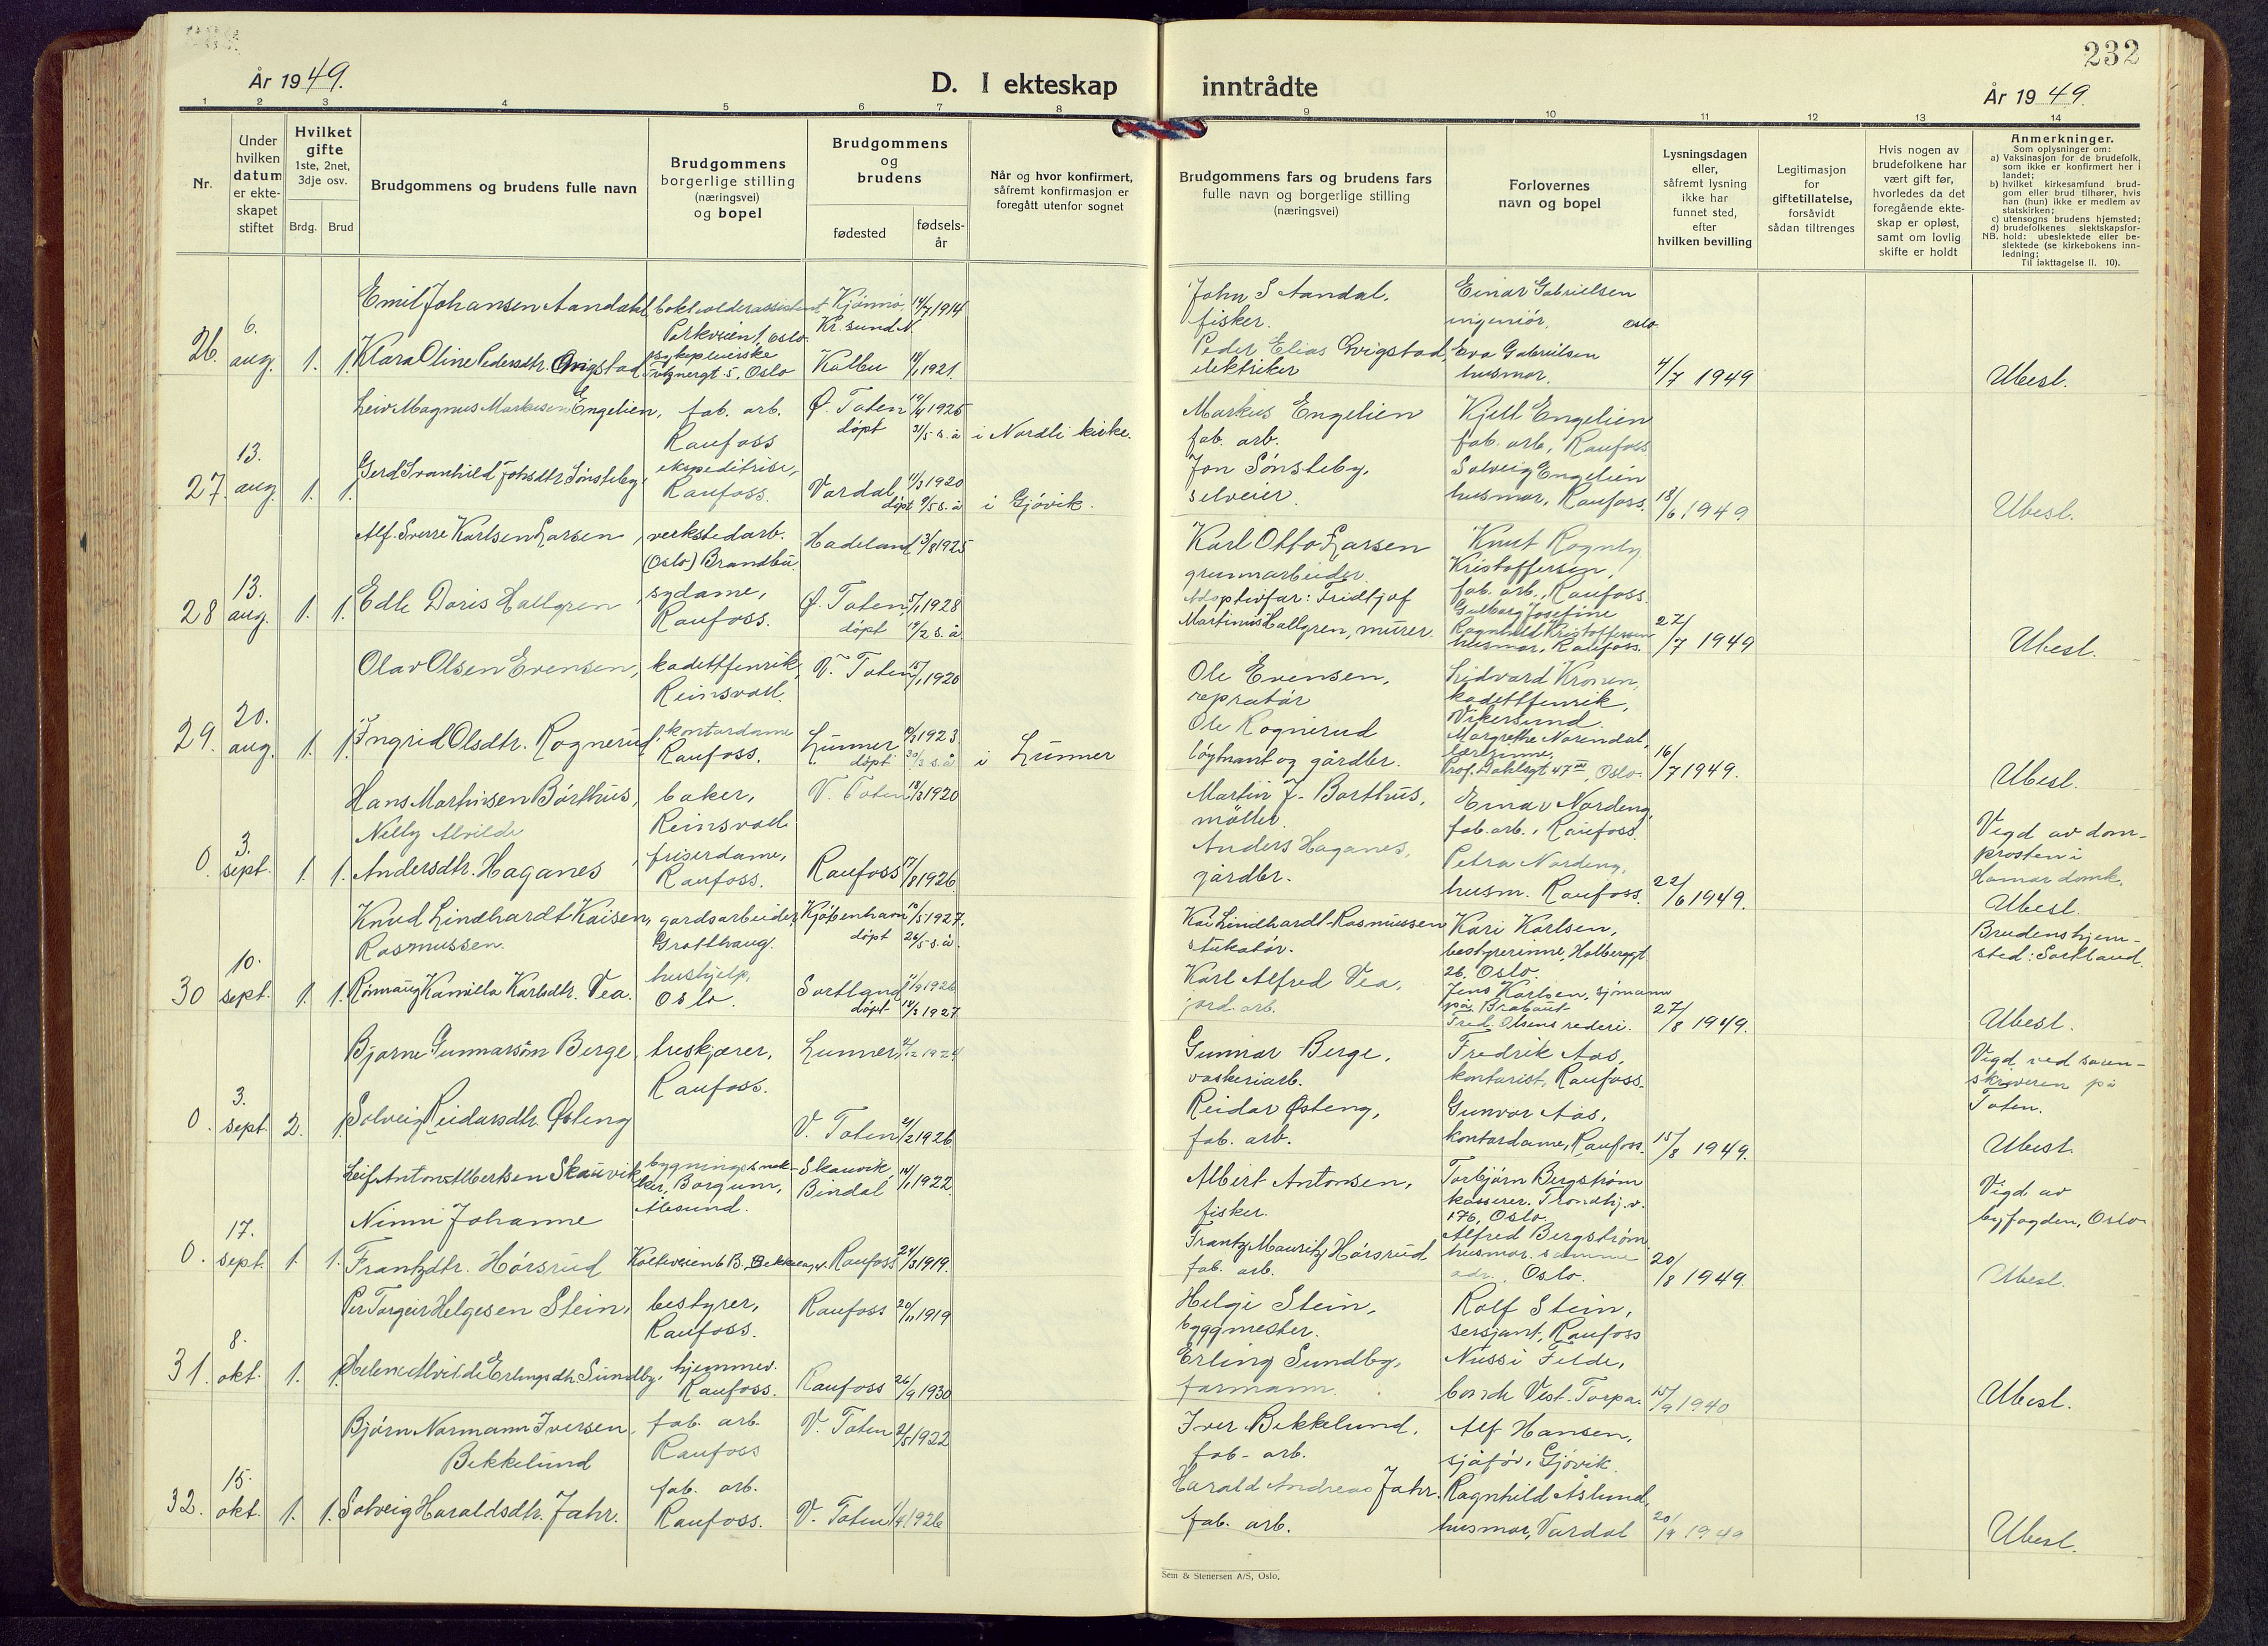 232
År 1949.
D. I ekteskap inntrådte
År 1949.
1 2 3 4 5 6 7 8 9 10 11 12 13 14
Nr.
Under hvilken datum er ekte- skapet stiftet
Hvilket gifte
1ste, 2net, 3dje osv.
Brdg. Brud
Brudgommens og brudens fulle navn
Brudgommens borgerlige stilling (næringsvei) og bopel
Brudgommens og brudens
fødested
fødsels- år
Når og hvor konfirmert, såfremt konfirmasjon er foregått utenfor sognet
Brudgommens fars og brudens fars fulle navn og borgerlige stilling (næringsvei)
Forlovernes navn og bopel
Lysningsdagen eller, såfremt lysning ikke har funnet sted, efter hvilken bevilling
Legitimasjon for giftetillatelse, forsåvidt sådan tiltrenges
Hvis nogen av brudefolkene har vært gift før, hvorledes da det foregående ekte- skap er opløst, samt om lovlig skifte er holdt
Anmerkninger.
Som oplysninger om:
a) Vaksinasjon for de brudefolk, som ikke er konfirmert her i landet;
b) hvilket kirkesamfund brud- gom eller brud tilhører, hvis han (hun) ikke er medlem av statskirken;
c) utensogns brudens hjemsted;
d) brudefolkenes slektskapsfor- hold: ubeslektede eller be- slektede (se kirkebokens inn- ledning;
NB.
Til iakttagelse II. 10).
26. 6. aug. 1. 1.
Emil Johansen Aandahl, bokholderassistent Parkveien 1, Oslo. Kr.sund N. 14/7 1914
John S Aandal, fisker.
Einar Gabrielsen ingeniør, Oslo
Klara Oline Pedersdtr. sykepleierske 5, Oslo Kolbu 1921.
Peder Elias elektriker
Eva Gabrielsen husmor. 4/7 1949 Ubesl.
27. 13. aug. 1. 1.
Leiv Magnus Markusen Engelien, fab. arb. Raufoss Ø. Toten 1925 døpt 31/5 s.å i Nordli kirke.
Markus Engelien fab. arb.
Kjell Engelien fab. arb, Raufoss
Gerd Svanhild Johsdtr Sønsteby ekspeditrise, Raufoss. Vardal 1920 døpt 9/5 s.å i Gjøvik.
Jon Sønsteby, selveier.
Solveig Engelien husmor, Raufoss. 18/6 1949 Ubesl.
28 13. aug. 1. 1.
Alf Sverre Karlsen Larsen, verkstedarb. (Oslo) Brandbu. Hadeland 3/8 1925
Karl Otto Larsen grunnarbeider.
Knut Rognly Kristoffersen, fab. arb., Raufoss.
Edle Doris Hallgren, sydame, Raufoss. Ø. Toten 5/1 1928 døpt 19/2 s.å
Adoptivfar: Fridtjof Martinius Hallgren, murer.
Gulborg Josefine Ragnhild Kristoffersen husmor, Raufoss. 27/7 1949 Ubesl.
29. 20. aug. 1. 1.
Olav Olsen Evensen, kadettfenrik, Reinsvoll. V. Toten 15/1 1920
Ole Evensen, repratør
Lidvard Kronen, kadettfenrik, Vikersund.
Ingrid Olsdtr. Rognerud, kontordame Raufoss. Lunner 1923 døpt s.å i Lunner
Ole Rognerud løytnant og gårdbr.
Margrethe Norendal, lærerinne, Prof. Dahlsgt 47 III, Oslo. 16/7 1949. Ubesl.
0. 3. sept. 1. 1.
Hans Martinsen Børthus, baker, Reinsvoll V. Toten 18/3 1920
Martin J. Børthus, møller.
Einar Nordeng, fab. arb., Raufoss.
Vigd av dom- prosten i Hamar domk.
Nelly Alvilde Andersdtr. Haganes, friserdame, Raufoss. Raufoss 17/8 1926
Anders Haganes, gårdbr.
Petra Nordeng, husm. Raufoss. 22/6 1949. Ubesl.
30 10. sept. 1. 1.
Knud Lindhardt Kaisen Rasmussen. gardsarbeider, Grøtthaug. Kjøbenhavn 1927. døpt 26/5 s.å.
Kai Lindhardt-Rasmussen stukatør.
Kari Karlsen, bestyrerinne, Holberggt 26, Oslo.
Brudens hjem- sted: Sortland.
Rønnaug Kamilla Karlsdtr. Vea. hushjelp, Oslo. Sortland 1926 døpt 1927
Karl Alfred Vea, jord. arb.
Jens Karlsen, sjømann på Brabant Fred. Olsens rederi. 27/8 1949. Ubesl.
0. 3. sept. 2. 1.
Bjarne Gunnarsøn Berge, treskjærer, Raufoss. Lunner, 1924
Gunnar Berge, vaskeriarb.
Fredrik Aas, kontorist, Raufoss.
Vigd ved soren- skriveren på Toten.
Solveig Reidarsdtr. Østeng V. Toten 21/2 1926
Reidar Østeng, fab. arb.
Gunvor Aas, kontordame, Raufoss. 15/8 1949. Ubesl.
0. 17. sept. 1. 1.
Leif Anton Albertsen Skauvik, bygningssnek- ker, Borgum, Ålesund. Skauvik, Bindal 14/1 1922
Albert Antonsen, fisker.
Torbjørn Bergstrøm kasserer. Trondhj.v. 176, Oslo.
Vigd av byfogden, Oslo
Ninni Johanne Frantzdtr. Hørsrud Raufoss 24/3 1919.
Frantz Mauritz Hørsrud, fab. arb.
Alfred Bergstrøm husmor. samme adr. Oslo. 20/8 1949. Ubesl.
31. 8. okt. 1. 1.
Per Torgeir Helgesen Stein, bestyrer, Raufoss. Raufoss 20/11 1919
Helge Stein, byggmester.
Rolf Stein, sersjant, Raufoss
Helene Alvilde Erlingsdtr. Sundby, hjemmev. Raufoss. Raufoss 26/9 1930
Erling Sundby, formann.
Nussi Felde, Vest. Torpa. 15/9 1940 Ubesl.
32. 15. okt. 1. 1.
Bjørn Normann Iversen Bekkelund fab. arb. Raufoss V. Toten 1922
Iver Bekkelund, fab. arb.
Alf Hansen, sjåfør, Gjøvik.
Solveig Haraldsdtr. Jahr. fab. arb. Raufoss. V. Toten 1926
Harald Andreas Jahr. fab. arb.
Ragnhild Åslund, husmor, Vardal 20/9 1949 Ubesl.
Sem & Stenersen A/S, Oslo.